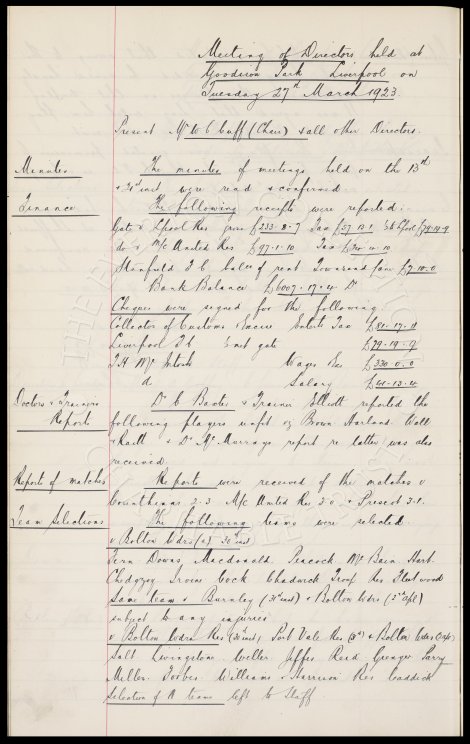 Meeting of Directors held at
Goodison Park Liverpool on
Tuesday 27th March 1923
Present Mr W C Cuff (Chair) & all other Directors.
Minutes The minutes of meetings held on the 13th
& 21st inst were read & confirmed
Finance The following receipts were reported:
Gate v Lpool Res gross £233-8-7 Tax £57-13-1 £79-19-9
do v M/c United Res £97-1-10 Tax
Stanfield F C balce of rent Townsend Lane £7-10-0
Bank Balance £6007-17-4 Dr
Cheques were signed for the following
Collector of Customs & Excise Ents Tax £81-17-11
Liverpool F C Event gate £79-19-9
T H McIntosh Wages &c £330-0-0
do Salary £41-13-4
Doctors & Trainers Report
Dr C Baxter & Trainer Elliott reported the
following players unfit eg Brown Harland Wall
& Raitt & Dr McMurrays report re latter was also
received.
Report of matches Reports were received of the matches v
Corinthians 2.3 M/c United Res 3.0 & Prescot 3.1.
Team Selections The following teams were selected
v Bolton Wdrs (a) 30th inst
Fern Downs Macdonald Peacock McBain Hart
Chedgzoy Irvine Cock Chadwick Troup Res Fleetwood
Same team v Burnley (31st inst) & Bolton Wdrs (2nd Apl)
subject to any injuries
v Bolton Wdrs Res Port Vale Res & Bolton Wdrs
Salt Livingstone Weller Jeffes Reid Grenyer Parry
Miller Forbes Williams & Harrison Res Caddick
Selection of A team left to Staff